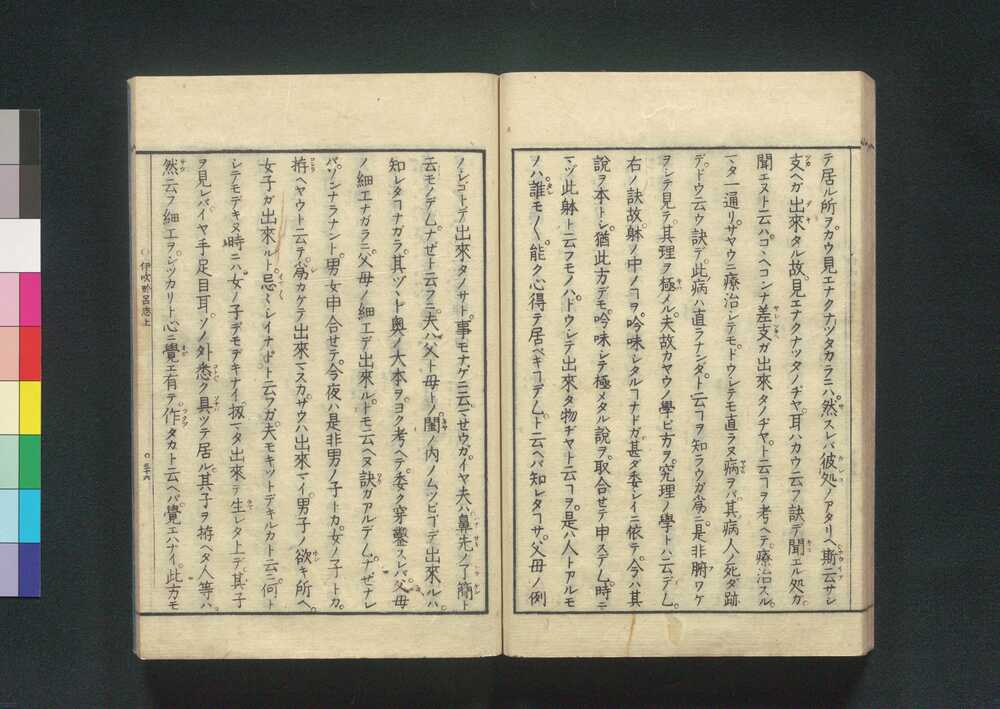 テ居ル所ヲカウ見エナクナツタカラニハ。然スレバ彼処ノアタリヘ斯云サシ
支ヘガ出來タル故。見エナクナツタノヂヤ。耳ハカウ云フ訣デ聞エル処ガ。
聞エヌト云ハ。コヽヘコンナ差支ガ出來タノヂヤ。ト云コヲ考ヘテ。療治スル。
マタ一通リ。サヤウニ療治シテモ。ドウシテモ直ラヌ病ヲバ。其病人ノ死ダ跡
デ。ドウ云ウ訣デ。此病ハ直ラナンダ。ト云コヲ知ラウガ為ニ。是非腑ワケ
ヲシテ見テ。其理ヲ極メル。夫故カヤウノ學ビ方ヲ。究理ノ學トハ云デム。
右ノ訣故。躰ノ中ノコヲ。吟味シタルコナドガ。甚ダ委シイニ依テ。今ハ其
說ヲ本トシ。猶此方デモ。吟味シテ極メタル說ヲ取合セテ申スデム。時ニ
マヅ此躰ト云フモノハ。ドウシテ出來タ物ヂヤト云コヲ。是ハ人トアルモ
ノハ。誰モ〳〵。能ク心得テ居ベキコデム。ト云ヘバ知レタコサ。父母ノ例
ノレゴトデ出來タノサト。事モナゲニ云マせウガ。イヤ夫ハ。鼻先ノ了簡ト
云モノデム。ナぜト云フニ。夫ハ父ト母トノ。閨ノ内ノムツビゴデ出來ルハ。
知レタコナガラ。其ヅヽト奥ノ大本ヲヨク考ヘテ。委ク穿鑿スレバ。父母
ノ細工ナガラニ。父母ノ細工デ出來ルトモ云ヘヌ訣ガアルデム。ナぜナレ
バ。ソンナラナント。男女申合せテ。今夜ハ是非男ノ子トカ。女ノ子トカ。
拵ヘヤウト云テ。為カケテ出來マスカ。サウハ出來マイ。男子ノ欲キ所ヘ。
女子ガ出來ルト。忌〻シイナドト云フガ。夫モキツトデキルカト云ニ。何ト
シテモデキヌ時ニハ。女ノ子デモデキナイ。扨マタ出來テ生レタ上デ。其子
ヲ見レバ。イヤ手足目耳。ソノ外悉ク具ツテ居ル。其子ヲ拵ヘタ人等ハ。
然云フ細エヲ。シツカリト心ニ覺エ有テ。作タカト云ヘバ。覺エハナイ。此方モ
伊吹於呂志上
〇三十六